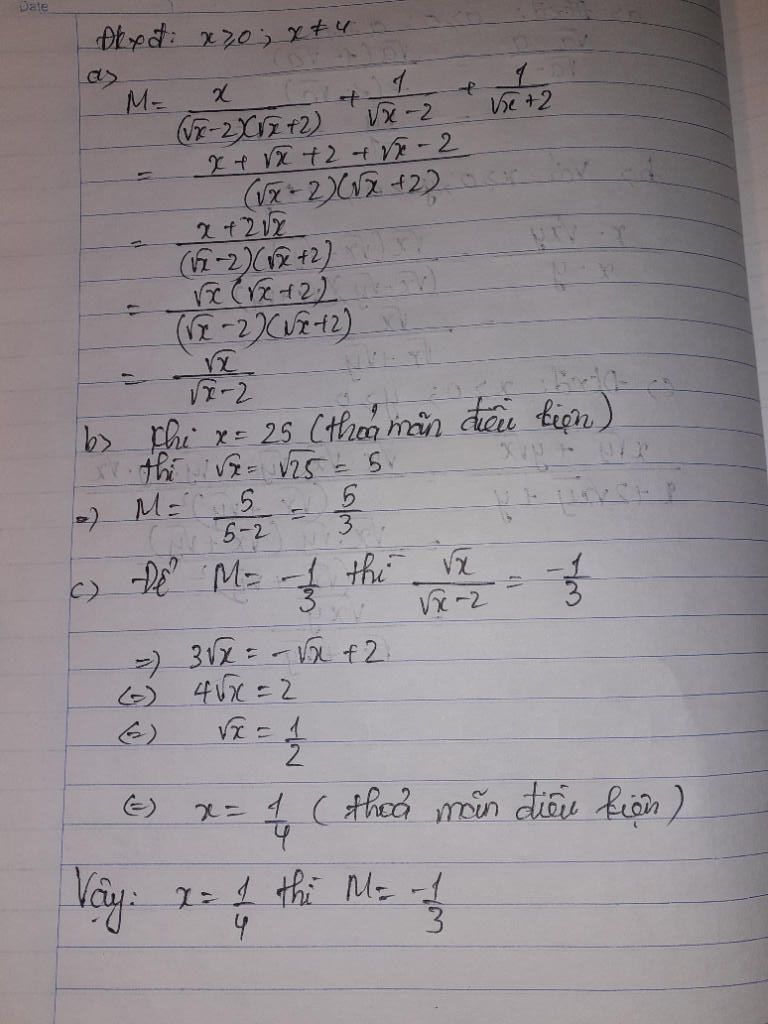 Date
Đkxđ: x ≥ 0 ; x ≠ 4
a>
M = x/((√x-2)(√x+2)) + 1/(√x-2) + 1/(√x+2)
= (x + √x + 2 + √x - 2)/((√x-2)(√x+2))
= (x + 2√x)/((√x-2)(√x+2))
= (√x(√x+2))/((√x-2)(√x+2))
= √x/(√x-2)
b> Khi x = 25 (thoả mãn điều kiện)
thì √x = √25 = 5
=) M = 5/(5-2) = 5/3
c) Để M = -1/3 thì √x/(√x-2) = -1/3
=) 3√x = -√x + 2
(=) 4√x = 2
(=) √x = 1/2
(=) x = 1/4 (thoả mãn điều kiện)
Vậy: x = 1/4 thì M = -1/3